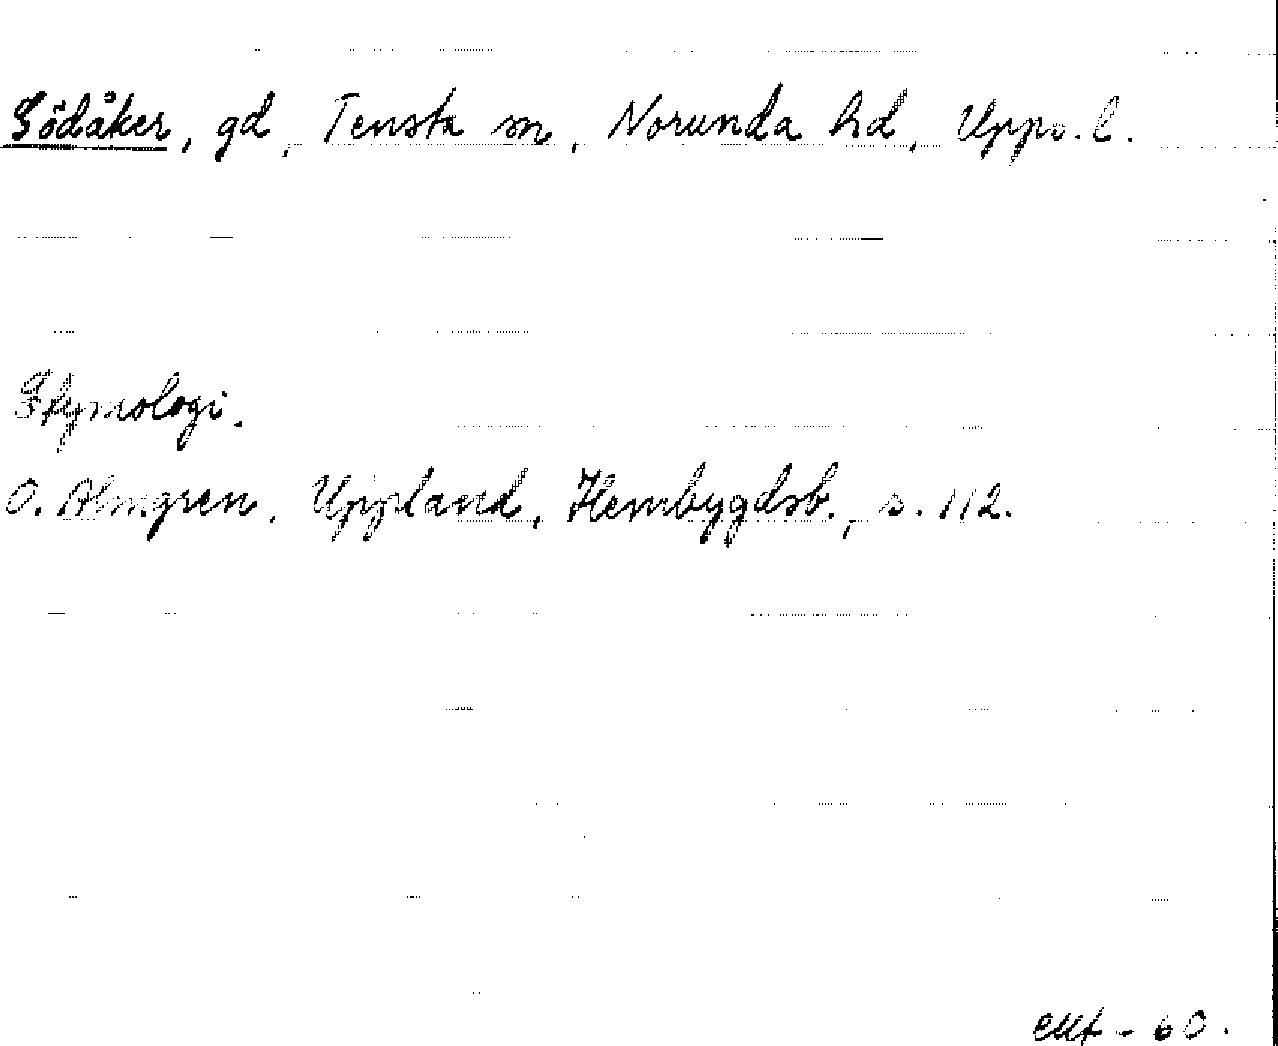 Södåker, gd, Tensta sn, Norunda hd, Upps. l.
Etymologi.
O. Almgren, Uppland, Hembygdsb., s. 112.
60.